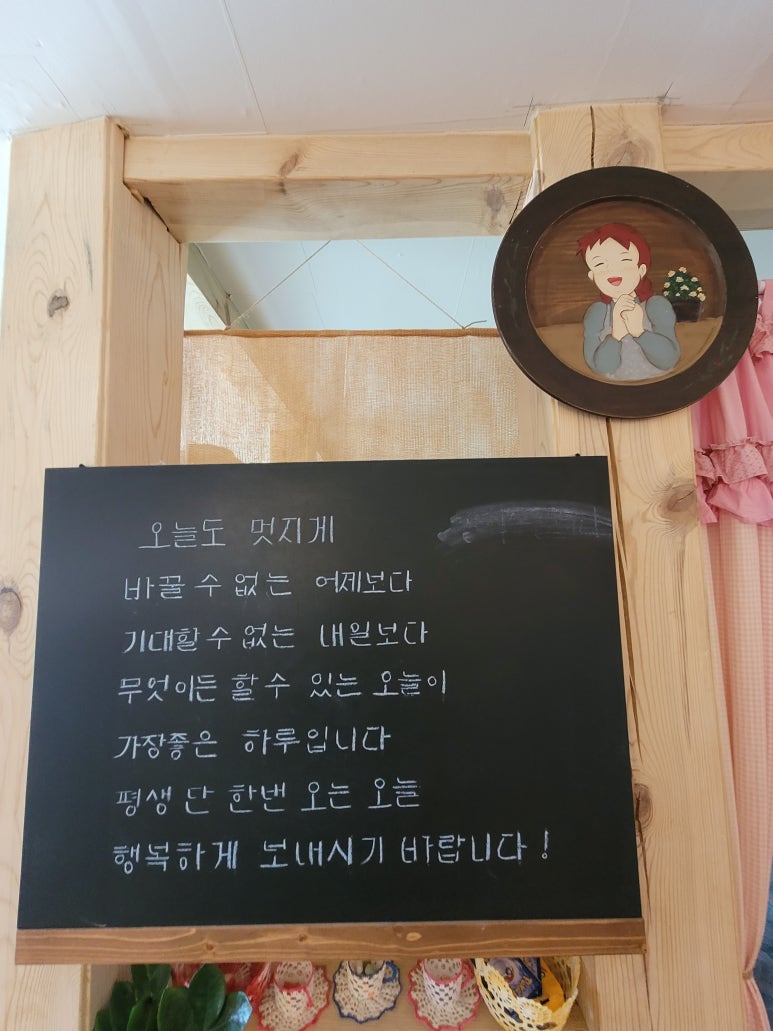 오늘도 멋지게
바꿀 수 없는 어제보다
기대할 수 없는 내일보다
무엇이든 할 수 있는 오늘이
가장좋은 하루입니다
평생 단 한번 오는 오늘
행복하게 보내시기 바랍니다!